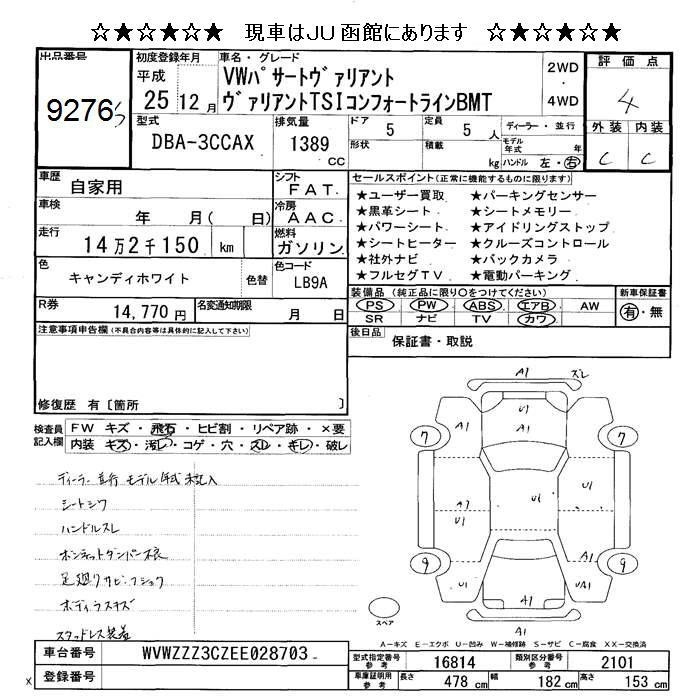 ☆★☆★☆★☆ 現車はJU函館にあります ☆★☆★☆★☆
出品番号 初度登録年月 車名・グレード 評価点
9276 平成 25 12月 VWパサートヴァリアント 2WD 4
ヴァリアントTSIコンフォートラインBMT 4WD
型式 排気量 ドア 5 定員 5人 ディーラー・並行 外装 内装
DBA-3CCAX 1389 CC 形状 積載 kg モデル年式 年 C C
ハンドル 左・右
車歴 自家用 シフト FAT. セールスポイント(正常に機能するものに限ります)
車検 年 月( 日) 冷房 AAC. ★ユーザー買取 ★パーキングセンサー
★黒革シート ★シートメモリー
走行 14万2千150 km 燃料 ガソリン ★パワーシート ★アイドリングストップ
★シートヒーター ★クルーズコントロール
色 キャンディホワイト 色替 色コード LB9A ★社外ナビ ★バックカメラ
★フルセグTV ★電動パーキング
R券 14,770円 名変通知期限 月 日 装備品(純正品に限り○をつけてください) 新車保証書
PS PW ABS エアB AW 有・無
SR ナビ TV カワ
注意事項申告欄(不具合内容等は具体的に記入して下さい) 後日品 保証書・取説
修復歴 有〔箇所 〕
検査員記入欄 FW キズ・飛石・ヒビ割・リペア跡・×要
内装 キズ・汚レ・コゲ・穴・スレ・キレ・破レ
ディーラー 並行 モデル年式 未記入
シートシワ
ハンドルスレ
ボンネットダンパー衰
足廻りサビ・フショク
ボディラスキズ
スタッドレス装着
A1 スレ
U1 A1
A1 A1
7 7
A1 U1 U1 U1
9 9
U1 A1 UA1
A1
スペア
A-キズ E-エクボ U-凹み W-補修跡 S-サビ C-腐食 XX-交換済
車台番号 WVWZZZ3CZEE028703 型式指定番号 参考 16814 類別区分番号 参考 2101
登録番号 車庫証明用 参考 長さ 478 cm 幅 182 cm 高さ 153 cm
x